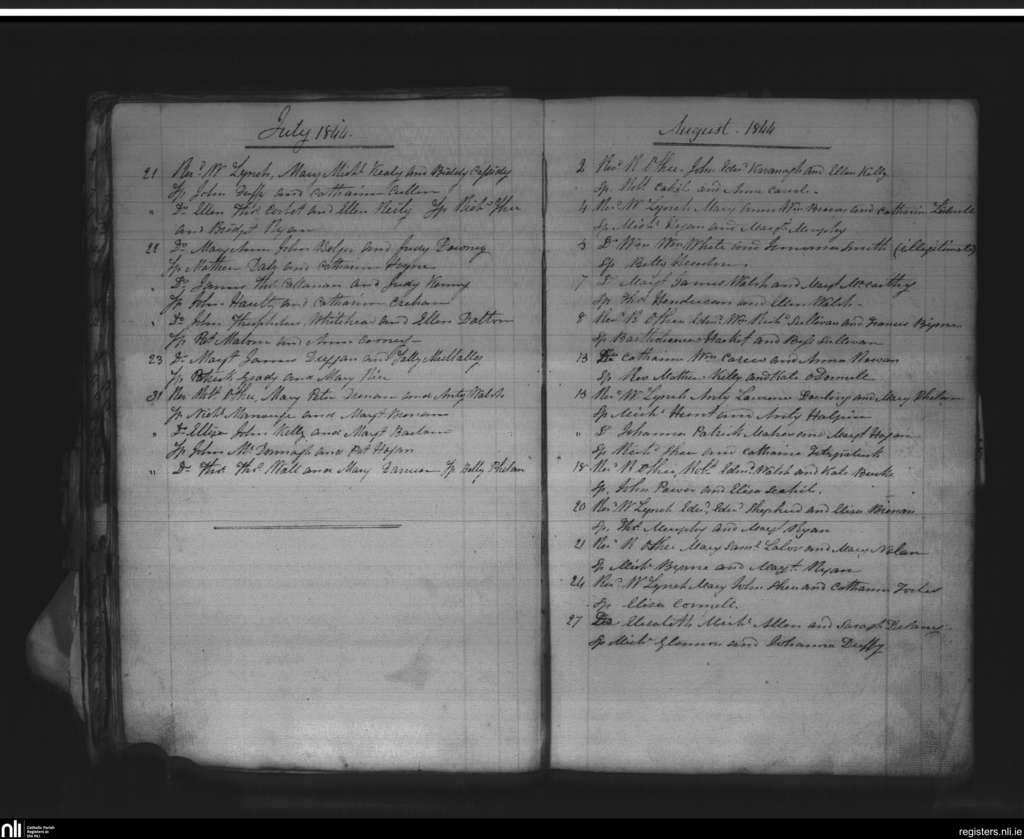 July 1844.
21 Revd W Lynch, Mary Michl Kealy and Biddy Cassidy
Sp John Duff and Catharine Cullen
" Do Ellen Thos Corbot and Ellen Sp Richd Shee
and Bridgt Ryan
22 Do Mary Ann John Bolger and Judy Downey
Sp Mathew Daly and Catharine
" Do James Thos Callanan and Judy Kenny
Sp John and Catharine
" Do John Whitehead and Ellen Dalton
Sp Pat Malone and Anne Cooney
23 Do Margt James Duggan and Mullally
Sp Patrick Grady and Mary
31 Rev Robt O'Shee, Mary Peter and Anty Walsh
Sp Michl and Margt
" Do Eliza John Kelly and Margt
Sp John McDonnagh and Pat Hogan
" Do Thos Thos Wall and Mary Sp Betty Phelan
August 1844
2 Revd R O'Shee John Edwd Kavanagh and Ellen Kelly
Sp. Robt Cahil and Anne
4 Revd W Lynch Mary Anne Wm and Catharine
Sp Michl Ryan and Margt Murphy
5 Do Wm Wm White and Smith (illegitimate)
Sp Betty
7 Do Margt James Walsh and Margt McCarthy
Sp Thos Henderson and Ellen Walsh
8 Revd R O'Shee Edwd Wm Richd Sullivan and Francis Byrne
Sp Bartholomew Hacket and Sullivan
13 Do Catharine Wm Carew and Anne
Sp Rev Mathew Kelly and Kate O'Donnell
13 Revd W Lynch Anty Laurence Dowling and Mary Phelan
Sp Michl Hunt and Anty Halpin
" Do Johanna Patrick Maher and Margt Hogan
Sp Richd Shee and Catharine Fitzpatrick
18 Revd R O'Shee, Robt Edwd Walsh and Kate Burke
Sp. John Power and Eliza
20 Revd W Lynch Edwd Edwd Shepherd and Eliza Brenan
Sp. Thos Murphy and Margt Ryan
21 Revd R O'Shee Mary Saml Lalor and Mary Nolan
Sp Michl Byrne and Margt Ryan
24 Revd W Lynch Mary John Shea and Catharine
Sp Eliza Connell.
27 Do Elisabeth Michl Allen and Saragh Delaney
Sp Michl Glennon and Johanna Duffy
nli Catholic Parish
Registers at
the NLI
registers.nli.ie